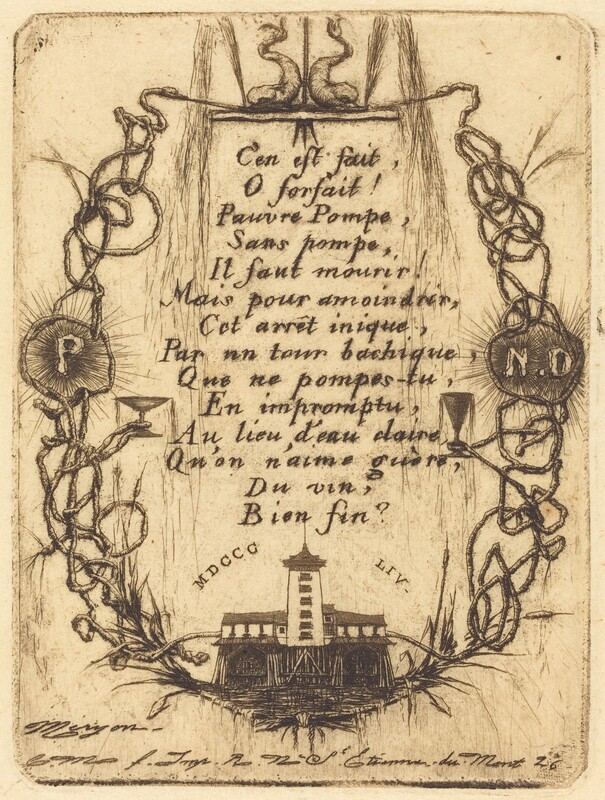 C'en est fait,
O forfait!
Pauvre Pompe,
Sans pompe,
Il faut mourir!
Mais pour amoindrir,
Cet arrêt inique,
Par un tour bachique,
Que ne pompes-tu,
En impromptu,
Au lieu d'eau claire,
Qu'on n'aime guère,
Du vin,
Bien fin?
P
N.D
MDCCC LIV.
Meryon
C. M. f. Imp. R. N. St. Etienne-du-Mont 26